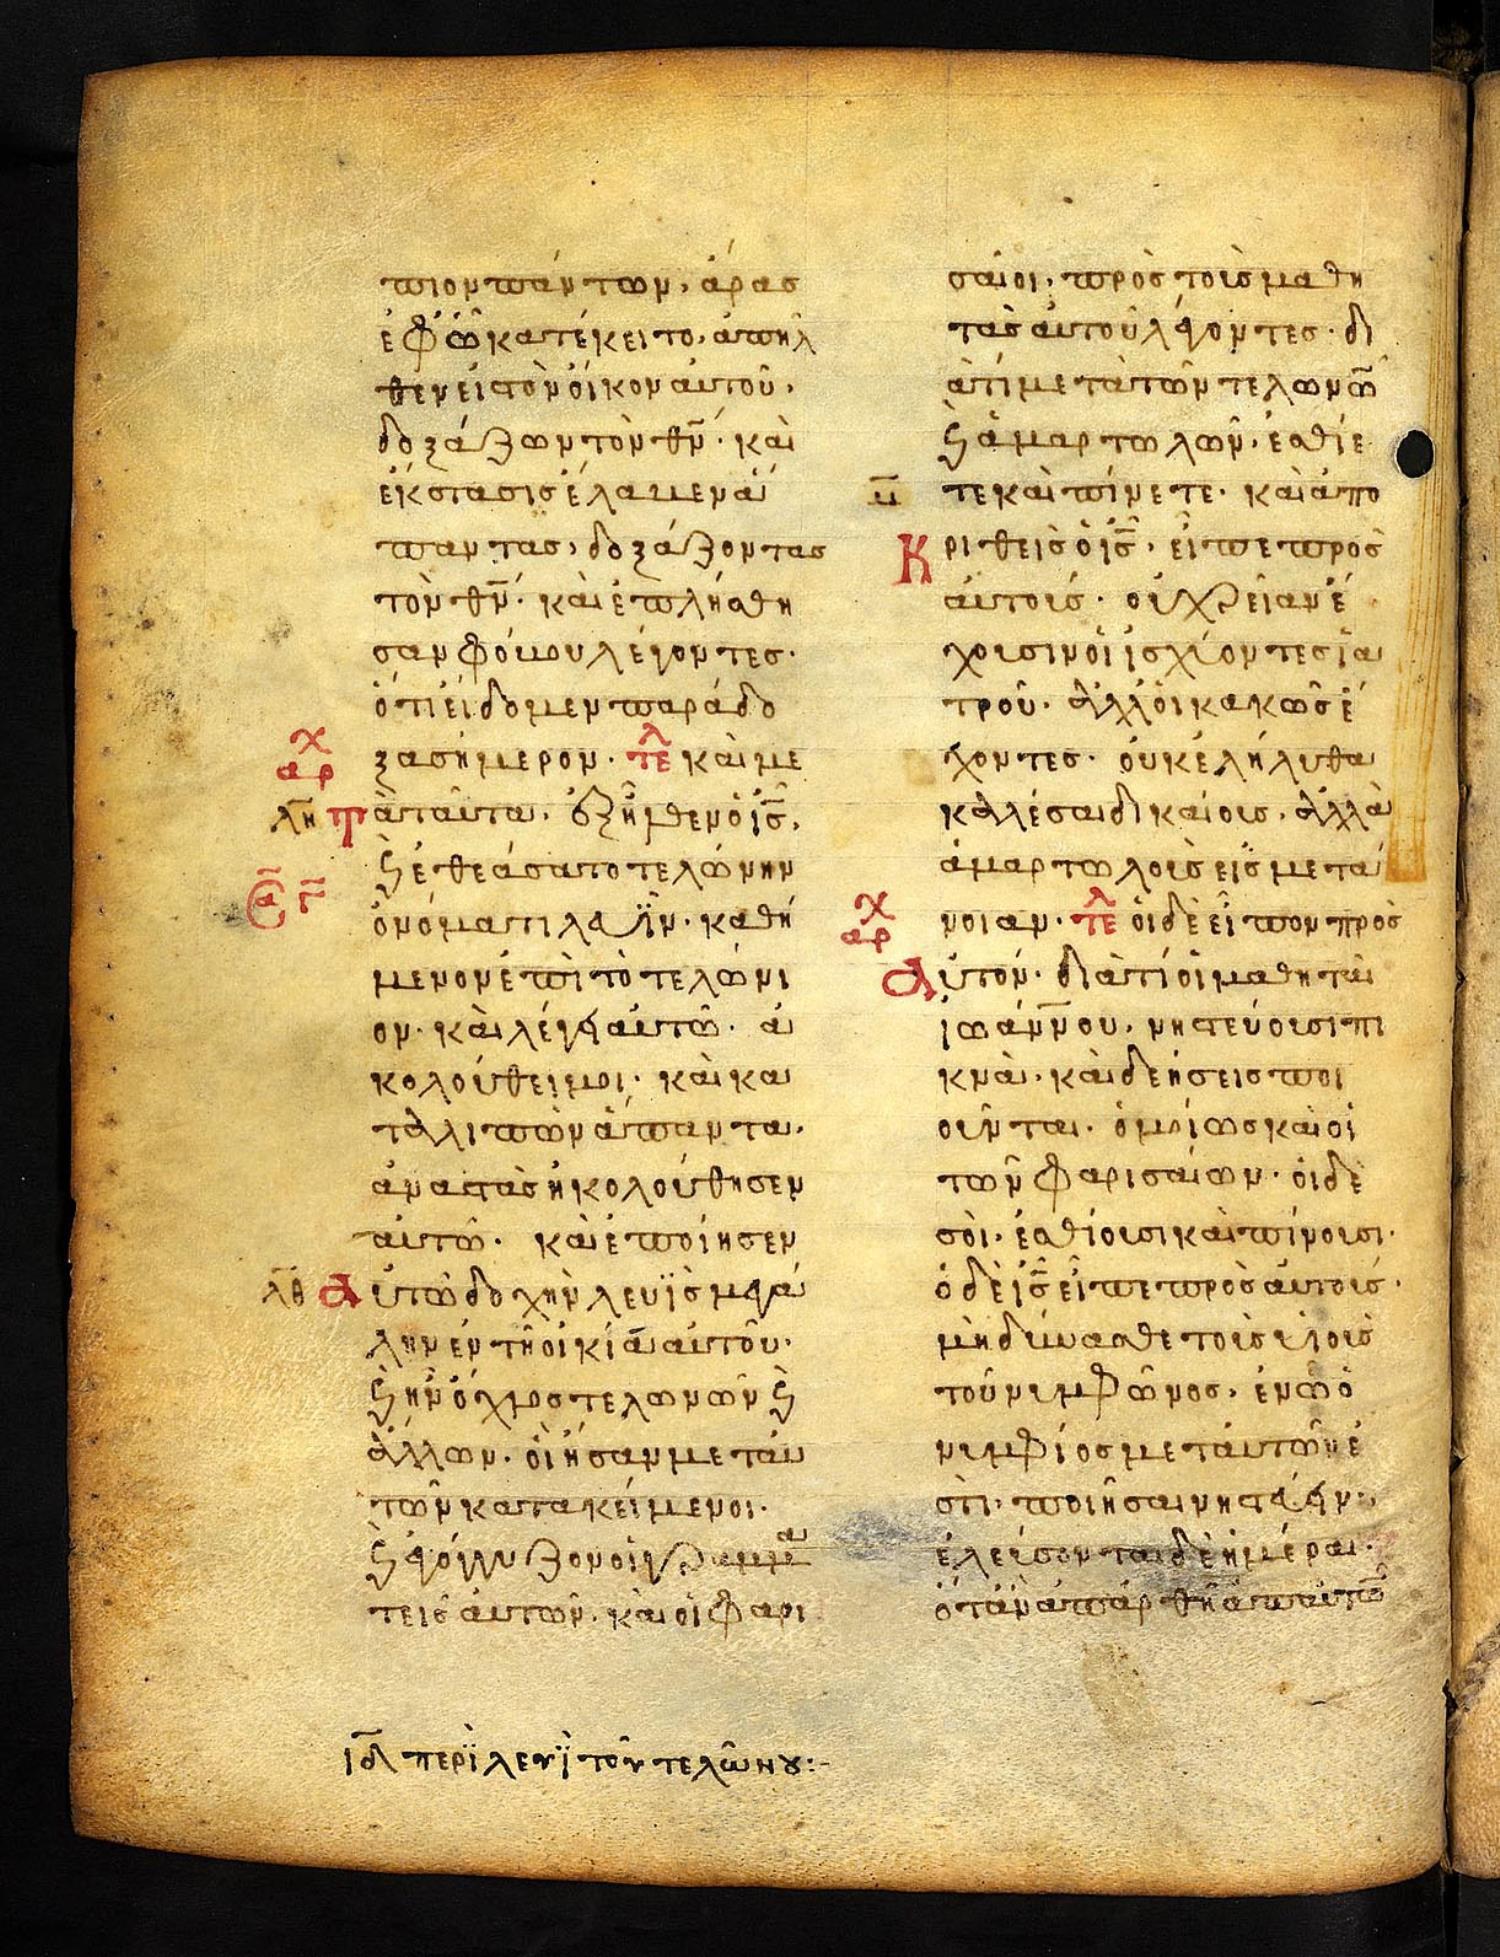 πιον πάντων, ἄρας
ἐφ ὧ κατέκειτο, ἀπηλ
θεν εἰς τὸν οἶκον αὐτοῦ,
δοξάζων τὸν θν̄· καὶ
ἔκστασις ἔλαβεν ἅ
παντας, δοξάζοντας
τὸν θν̄· καὶ ἐπλήσθη
σαν φόβου λέγοντες·
ὅτι εἴδομεν παράδο
χ
αρ
ξα σήμερον· τε̄λ καὶ με
λη̄ τὰ ταῦτα, ἐξῆλθεν ὁ ις̄,
ϗ ἐθεάσατο τελώνην
ὀνόματι λευϊν· καθή
μενον ἐπὶ τὸ τελώνι
ον· καὶ λέγει αὐτῶ· ἀ
κολούθει μοι· καὶ κα
ταλιπὼν ἅπαντα,
ἀναστὰς ἠκολούθησεν
αὐτῶ· καὶ ἐποίησεν
λθ̄ Αὐτῶ δοχὴν λευϊς μεγά
λην ἐν τῆ οἰκία αὐτοῦ·
ϗ ἦν ὄχλος τελωνῶν ϗ
ἄλλων· οἳ ἦσαν μετ αυ
τῶν κατακείμενοι·
ϗ ἐγόγγυζον οἱ γραμμα
τεῖς αὐτῶν, καὶ οἱ φαρι
σαῖοι, πρὸς τοὺς μαθη
τὰς αὐτοῦ λέγοντες· δι
ὰ τί μετὰ τῶν τελωνῶ̄
ϗ ἁμαρτωλῶν, ἐσθίε
μ̄ τε καὶ πίνετε· καὶ ἀπο
Κριθεὶς ὁ ις̄, εἶπε πρὸς
αὐτούς· οὐ χρείαν ἔ
χουσιν οἱ ἰσχύοντες ἰα
τροῦ· ἀλλ οἱ κακῶς ἔ
χοντες· οὐκ ἐλήλυθα
καλέσαι δικαίους, ἀλλὰ
ἁμαρτωλοὺς εἰς μετά
χ
αρ
νοιαν· τε̄λ οἱ δὲ εἶπον πρὸς
Αὐτόν· διὰ τί οἱ μαθηταὶ
ἰωάννου, νηστεύουσι πυ
κνὰ, καὶ δεήσεις ποι
οῦνται· ὁμοίως καὶ οἱ
τῶν φαρισαίων· οἱ δὲ
σοὶ, ἐσθίουσι καὶ πίνουσι·
ὁ δὲ ις̄ εἶπε πρὸς αὐτούς·
μὴ δύνασθε τοὺς υἱοὺς
τοῦ νυμφῶνος, ἐν ὧ ὁ
νυμφίος μετ αὐτῶν ἐ
στὶ, ποιῆσαι νηστεύειν·
ἐλεύσονται δὲ ἡμέραι·
ὅταν ἀπαρθῆ ἀπ αὐτῶ̄
ιδ̄ περὶ λευϊ τοῦ τελώνου:-